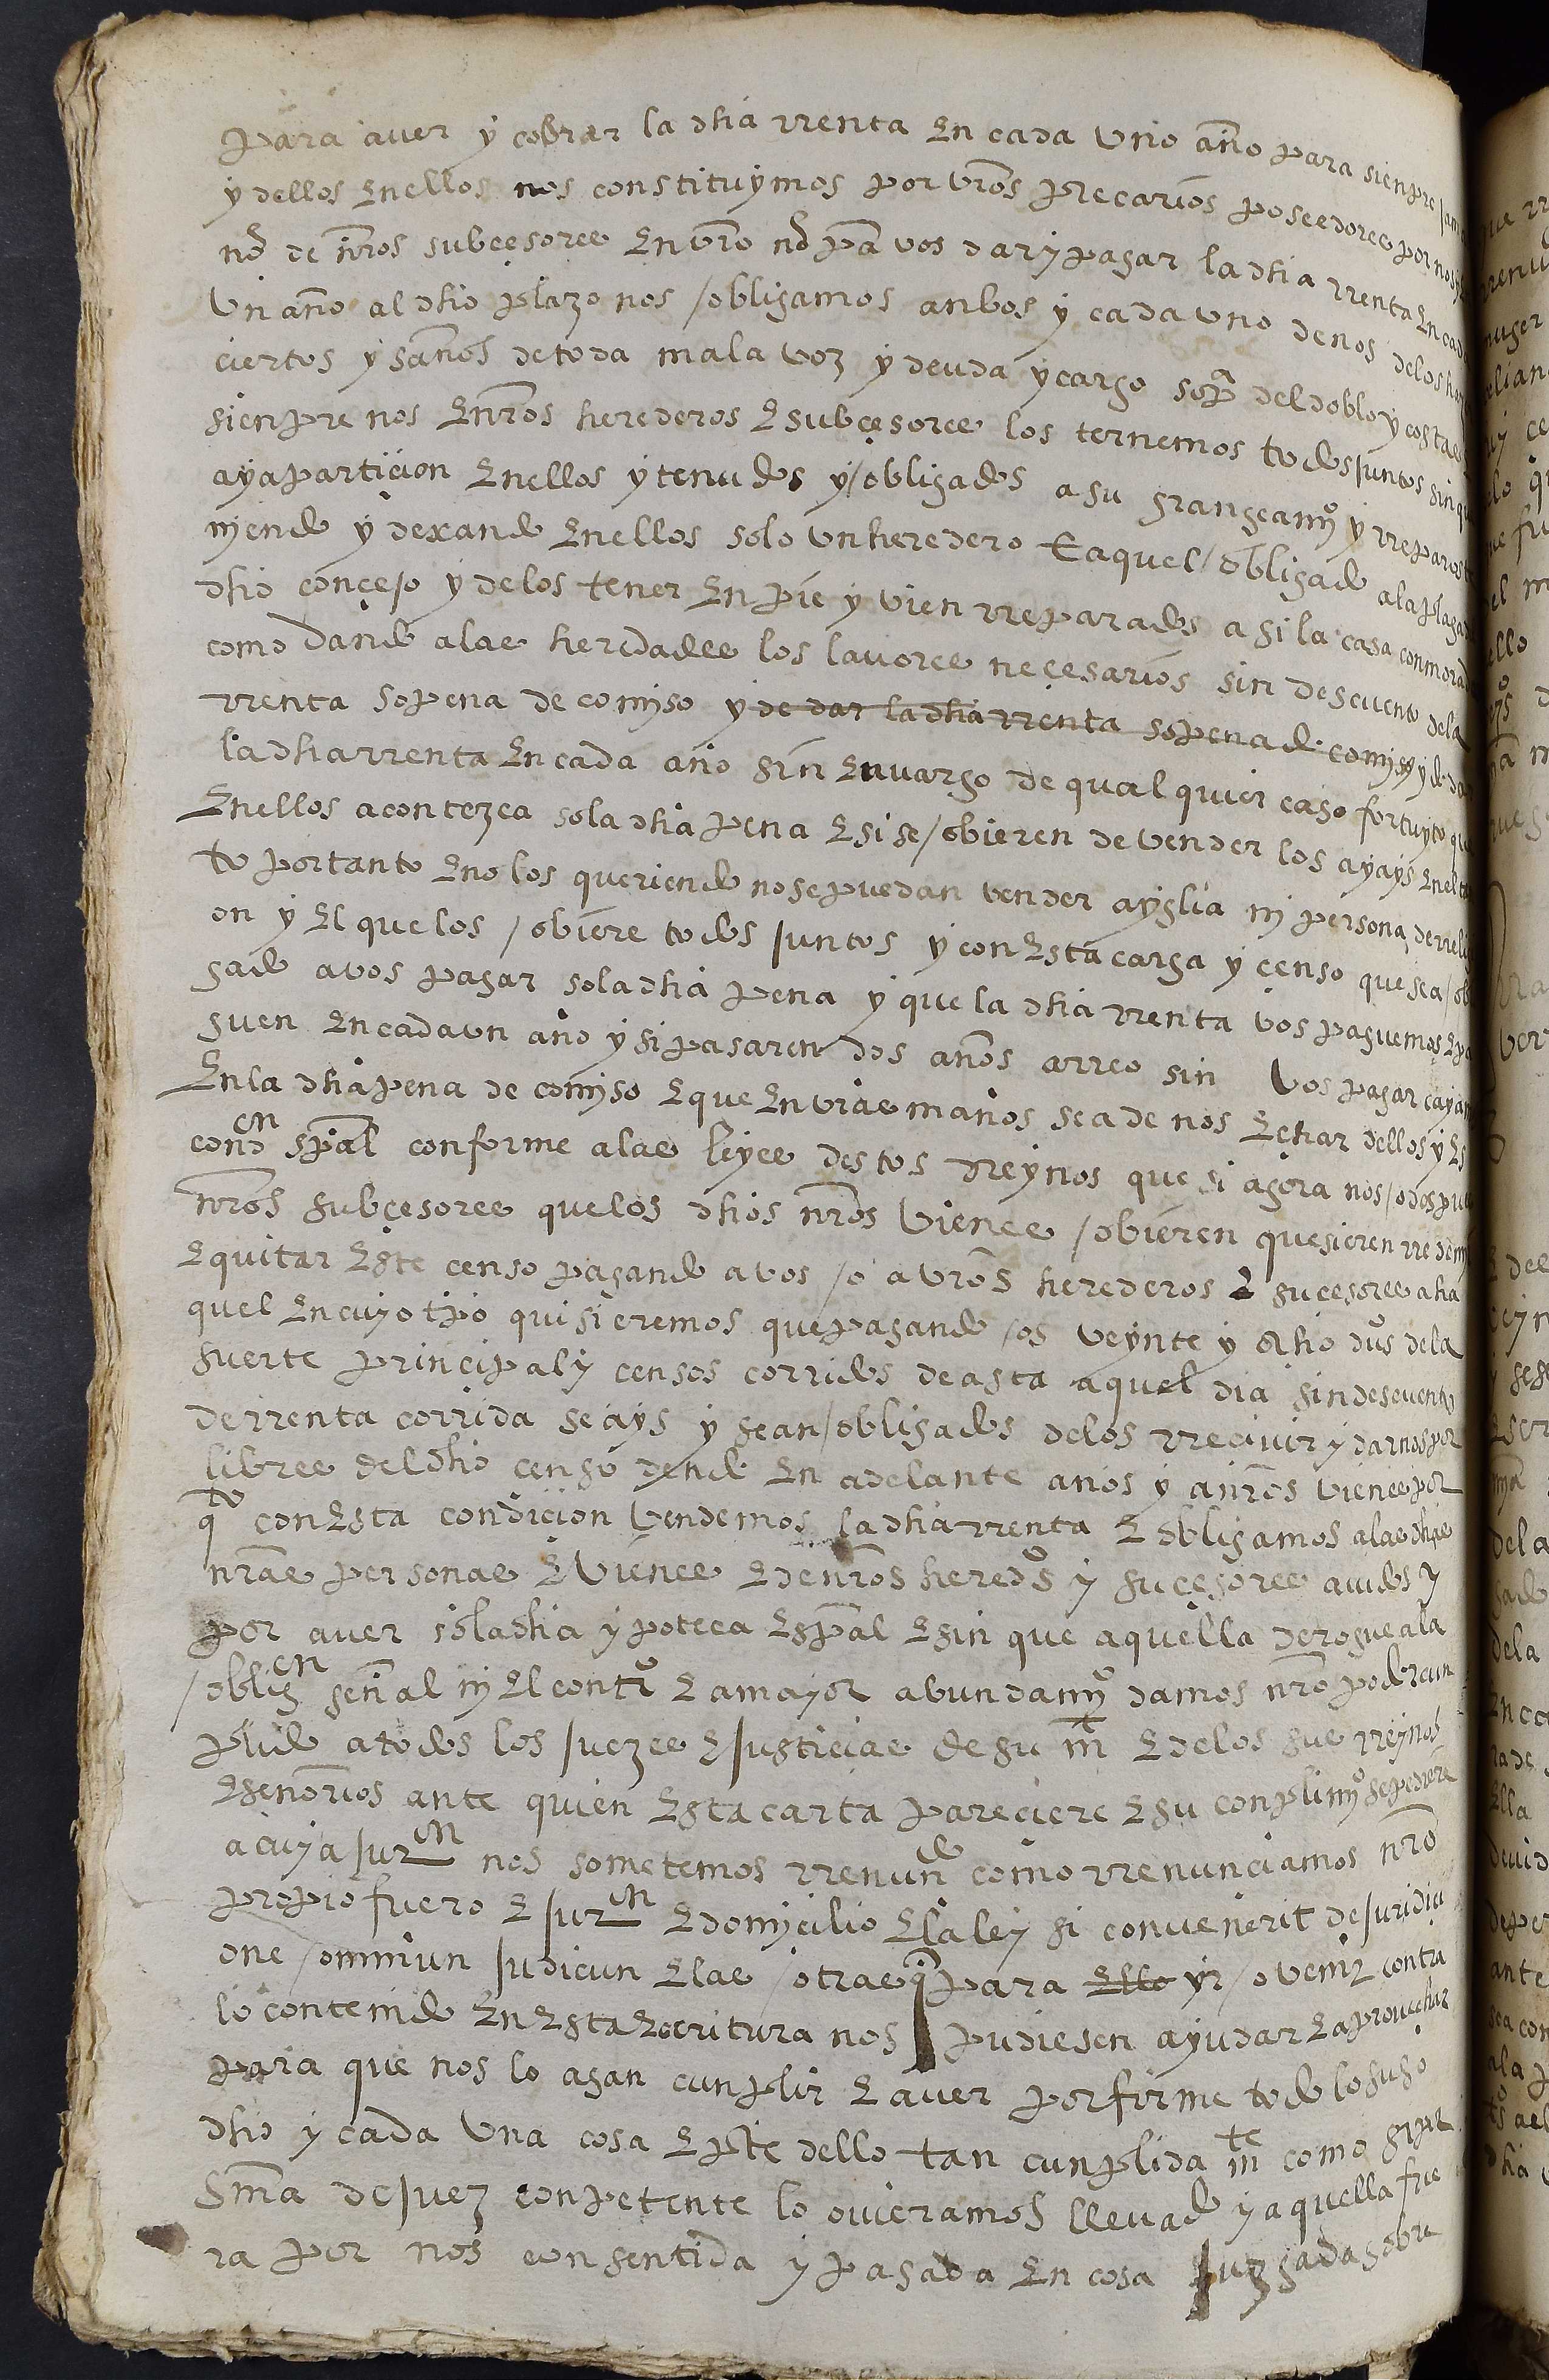 para aver y cobrar la dha rrenta En cada vno año para sienpre jam
y dellos Enellos nos constituymos por vros precarios poseedores por nos y
no de nros subçesores En vro no pa vos dar y pagar la dha rrenta En cad
vn año al dho plazo nos / obligamos anbos y cada vno de nos de los haz
ciertos y sanos de toda mala voz y deuda y cargo so pa del doblo y costas
sienpre nos E nros herederos E subçesores los ternemos todos juntos sin qu
aya particion Enellos y tenudos y / obligados a su grangeamyo y rreparos te
niendo y dexando Enellos solo vn heredero E aquel / obligado a la paga d
dho conçejo y de los tener En pie y vien rreparados asi la casa con morad
como dando a las heredades los lavores neçesarios sin descuento de la
rrenta so pena de comiso y de dar la dha rrenta so pena de comiso y de da
la dha rrenta En cada año sin Envargo de qual quier caso fortuyto qu
Enellos acontezca so la dha pena E si se / obieren de vender los ayays Enel ta
to por tanto E no los queriendo no se puedan vender a yglia ni persona de rreli
on y El que los / obiere todos juntos y con Esta carga y çenso que sea / ob
gado a vos pagar so la dha pena y que la dha rrenta vos paguemos E pa
guen En cada vn año y si pasaren dos años arreo sin vos pagar cayan
En la dha pena de comiso E que En vras manos sea de nos Echar dellos y Es
condcn spal conforme a las leyes destos rreynos que si agora nos / o despues
nros subçesores que los dhos nros vienes / obieren quesieren rredemi
E quitar Este censo pagando a vos / o a vros herederos E sucesores a ha
quel En cuyo tpo quisieremos que pagando / os veynte y ocho dus de la
suerte principal y censos corridos de asta aquel dia sin descuento
de rrenta corrida seays y sean / obligados de los rrecivir y darnos por
libres del dho censo dende En adelante a nos y a nros vienes por
qto con Esta condicion vendemos la dha rrenta E obligamos a las dhas
nras personas E vienes E de nros heredos y suçesores avidos y
por aver so la dha ypoteca Espal E sin que aquella derogue a la
/ obligcn genal ni El contro E a mayor abundamyo damos nro poder cun
plido a todos los juezes E justicias de su mt E de los sus rreynos
E señorios ante quien Esta carta pareciere E su conplimyo se pediere
a cuya jurcn nos sometemos rrenundo como rrenunciamos nro
propio fuero E jurcn E domycilio E la ley si convenerit de juridici
one / omniun judicun E las / otras q para Ello yr / o venir contra
lo contenido En Esta Escritura nos pudiesen ayudar E aprouechar
para que nos lo agan cunplir E aver por firme todo lo suso
dho y cada vna cosa E pte dello tan cunplida mte como si por
Sma de juez conpetente lo ovieramos llevado y aquella fue
ra por nos consentida y pasada En cosa juzgada sobre